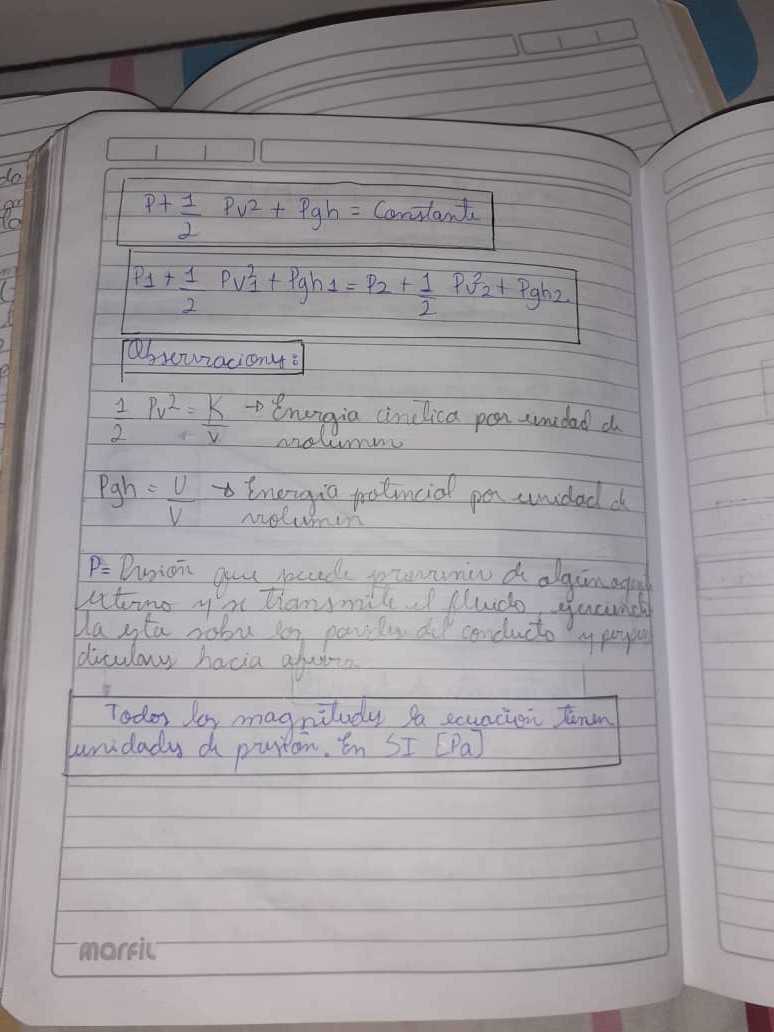 P + 1/2 Pv² + Pgh = Constante
P1 + 1/2 Pv1² + Pgh1 = P2 + 1/2 Pv2² + Pgh2
Observaciones:
1/2 Pv² = K/V → Energia cinetica por unidad de
volumen
Pgh = U/V → Energia potencial por unidad de
volumen
P = Presión que puede provenir de algún agente
externo y se transmite el fluido, ejerciendo
la esta sobre las paredes del conducto y perpen
diculares hacia afuera
Todas las magnitudes la ecuación tienen
unidades de presión. En SI [Pa]
marfil